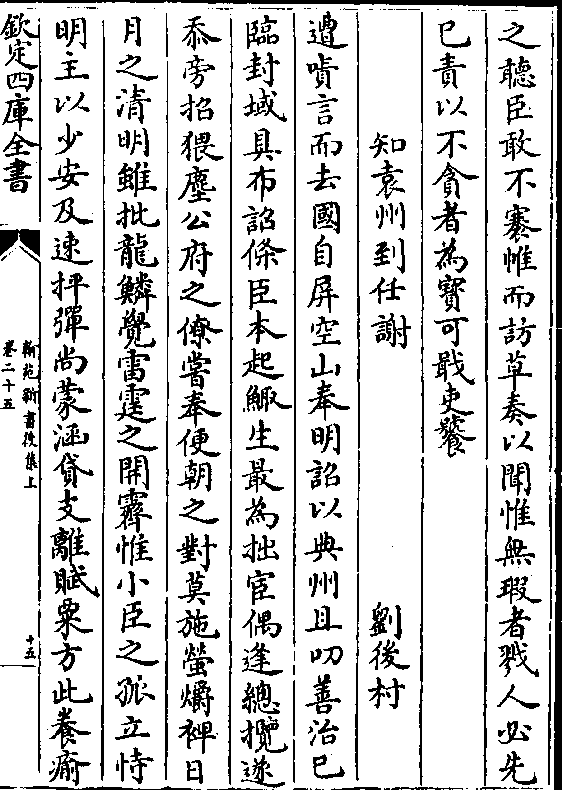 之聽臣敢不褰帷而訪草奏以聞惟無瑕者戮人必先
已責以不貪者為寳可戢吏饕
知袁州到任謝 劉後村
遭嘖言而去國自屏空山奉明詔以典州且叨善治已
臨封域具布詔條臣本起鯫生最為拙宦偶逢總攬遂
忝旁招猥塵公府之僚嘗奉便朝之對莫施螢爝裨日
月之清明雖批龍鱗覺雷霆之開霽惟小臣之孤立恃
明主以少安及速抨彈尚蒙涵貸支離賦粟方此養痾
欽定四庫全書
翰苑新書後集上
卷二十五
十五